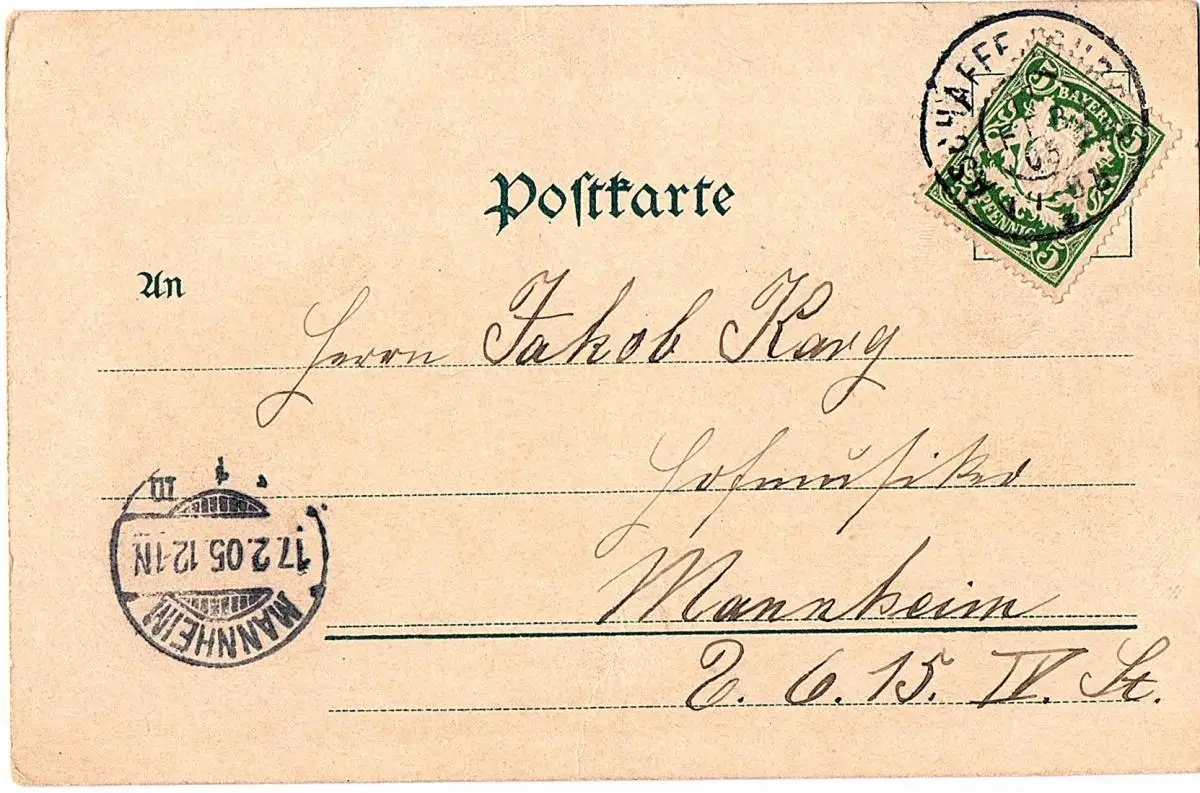 Postkarte
An
Herrn Jakob Karg
Hofmusiker
Mannheim
6. 15. IV. St.
BAYERN
5 5
PFENNIG
5 5
ASCHAFFENBURG
05
MANNHEIM
17.2.05 12-1N
1